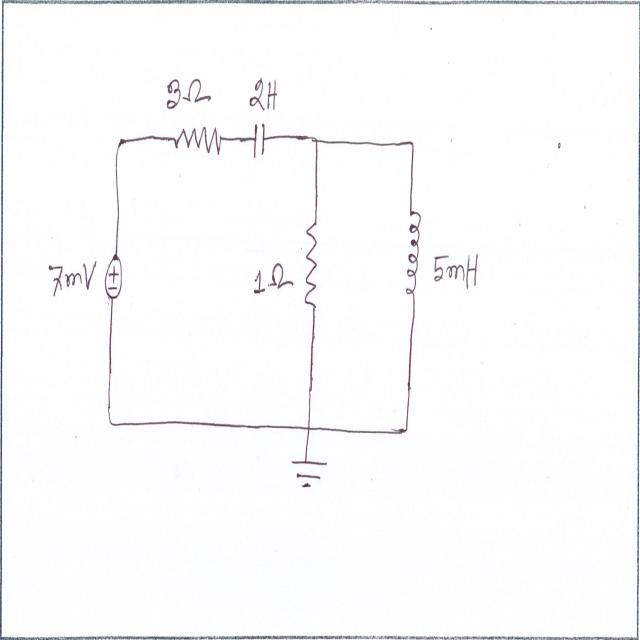 3Ω 2H
7mV ± 1Ω 5mH